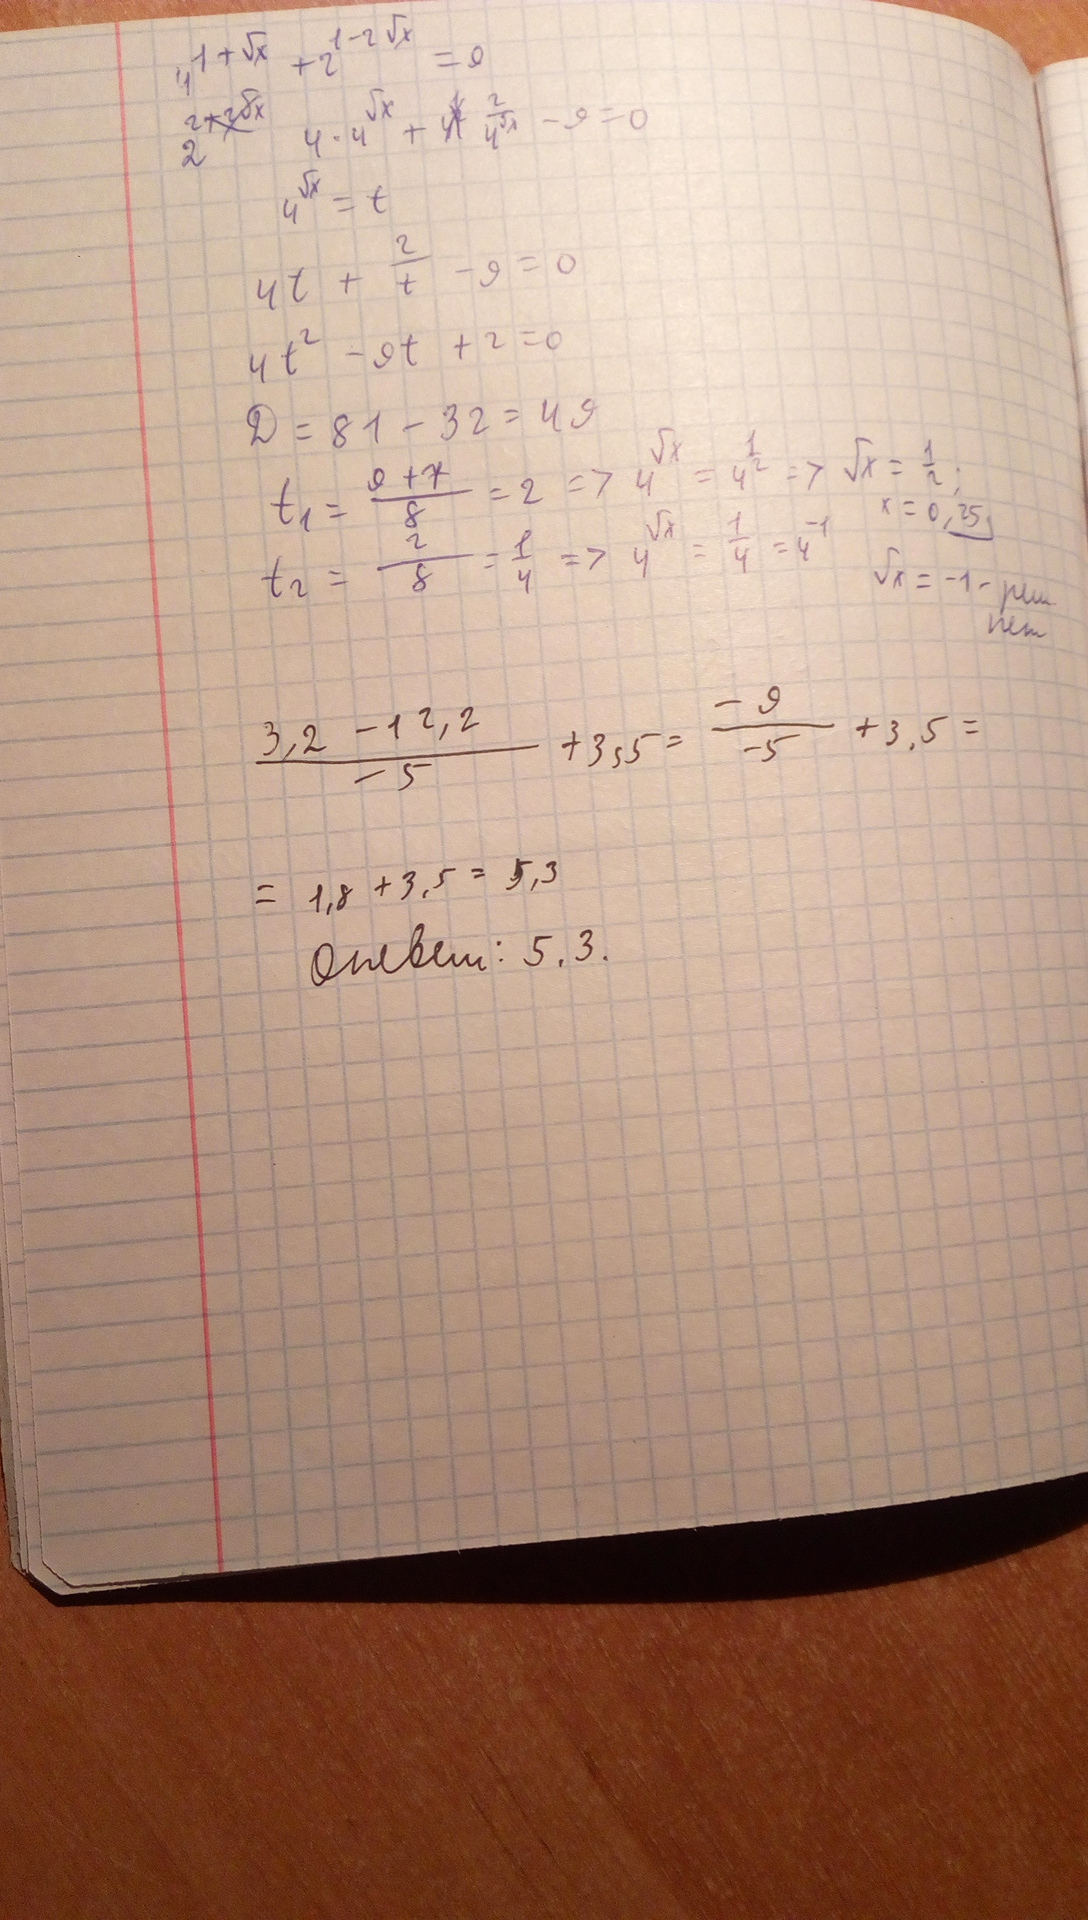 4^{1+√x} + 2^{1-2√x} = 9
2^{2+2√x} 4·4^{√x} + 2/4^{√x} - 9 = 0
4^{√x} = t
4t + 2/t - 9 = 0
4t² - 9t + 2 = 0
D = 81 - 32 = 49
t₁ = (9+7)/8 = 2 => 4^{√x} = 4^{1/2} => √x = 1/2;
x = 0,25;
t₂ = 2/8 = 1/4 => 4^{√x} = 1/4 = 4^{-1}
√x = -1 - реш
нет
(3,2 - 12,2)/(-5) + 3,5 = (-9)/(-5) + 3,5 =
= 1,8 + 3,5 = 5,3
Ответ: 5,3.